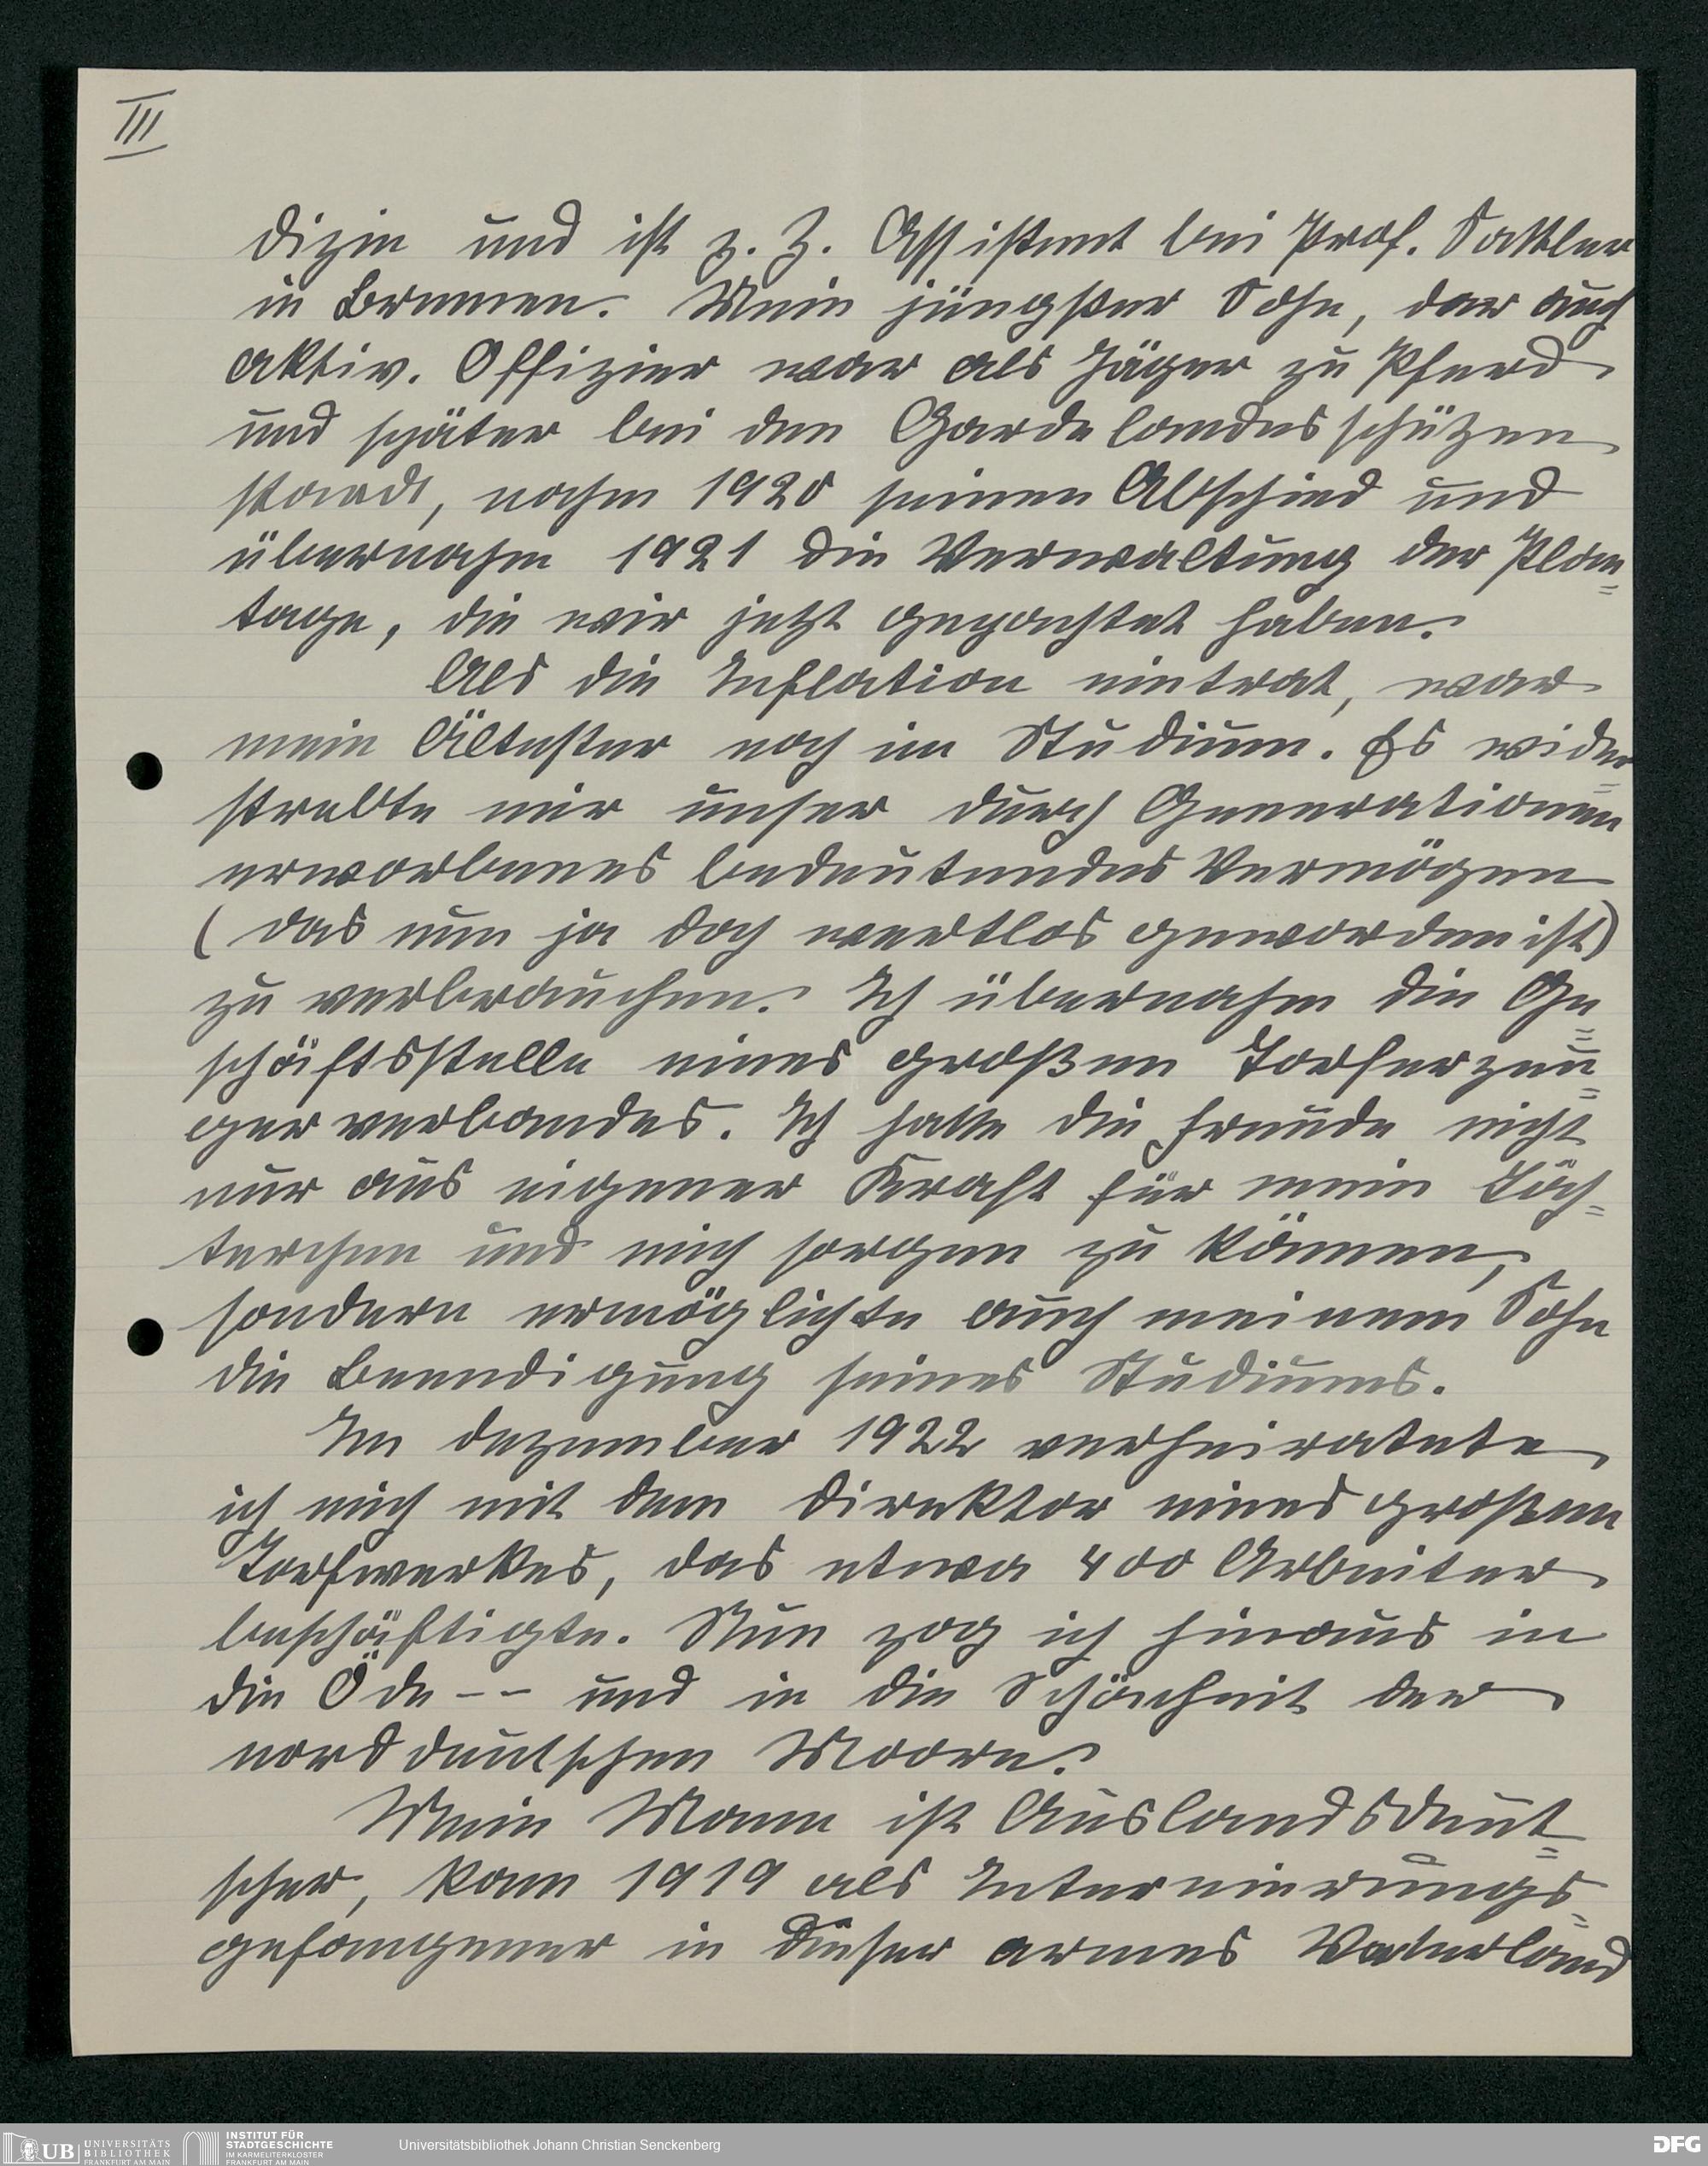 III
dizin und ist z. Z. Assistent bei Prof. Sattler
in Bremen. Mein jüngster Sohn, der auch
aktiv. Offizier war als Jäger zu Pferd
und später bei den Gardelandesschützen
stand, nahm 1920 seinen Abschied und
übernahm 1921 die Verwaltung der Plan=
tage, die wir jetzt gepachtet haben.
Als die Inflation eintrat, war
mein Ältester noch im Studium. Es wider=
strebte mir unser durch Generationen
erworbenes bedeutendes Vermögen
(das nun ja doch wertlos geworden ist)
zu verbrauchen. Ich übernahm die Ge=
schäftsstelle eines großen Torferzeu=
gerverbandes. Ich hatte die Freude nicht
nur aus eigener Kraft für mein Töch=
terchen und mich sorgen zu können,
sondern ermöglichte auch meinem Sohn
die Beendigung seines Studiums.
Im Dezember 1922 verheiratete
ich mich mit dem Direktor eines großen
Torfwerkes, das etwa 400 Arbeiter
beschäftigte. Nun zog ich hinaus in
die Öde -- und in die Schönheit der
norddeutschen Moore.
Mein Mann ist Auslandsdeut=
scher, kam 1919 als Internierungs=
gefangener in dieser armes Vaterland
UB UNIVERSITÄTS BIBLIOTHEK FRANKFURT AM MAIN
INSTITUT FÜR STADTGESCHICHTE IM KARMELITERKLOSTER FRANKFURT AM MAIN
Universitätsbibliothek Johann Christian Senckenberg
DFG